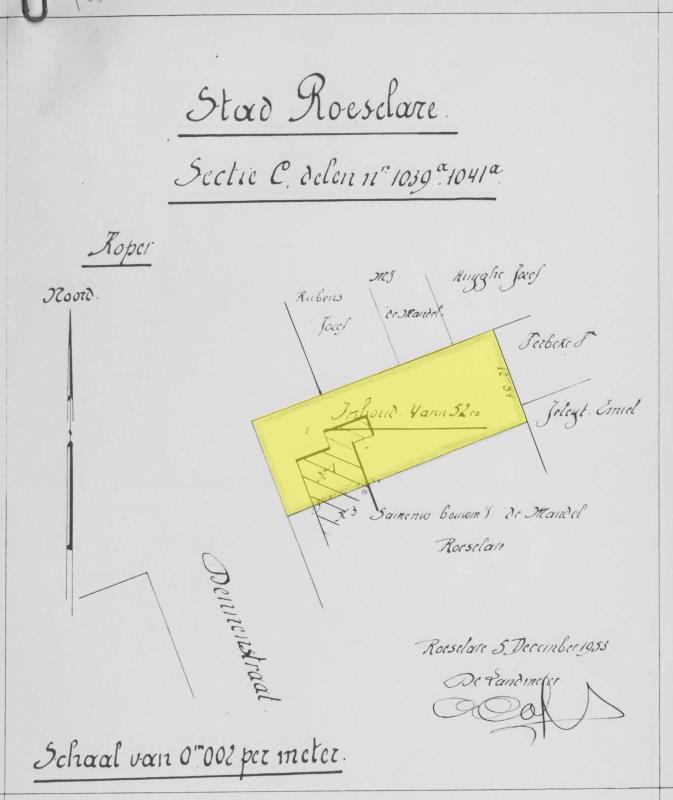 Stad Roeselare.
Sectie C, delen nrs 1039a 1041a.
Koper
Noord.
Rubens
Jozef
Mij.
de Mandel.
Huyghe Jozef
Terbeke
Inhoud. 4 aren 52 ca
Emiel
Nr 1
Nr 3
de Mandel
Roeselare
Dennenstraat
Roeselare 5 December 1953
De Landmeter
Schaal van 0m002 per meter.